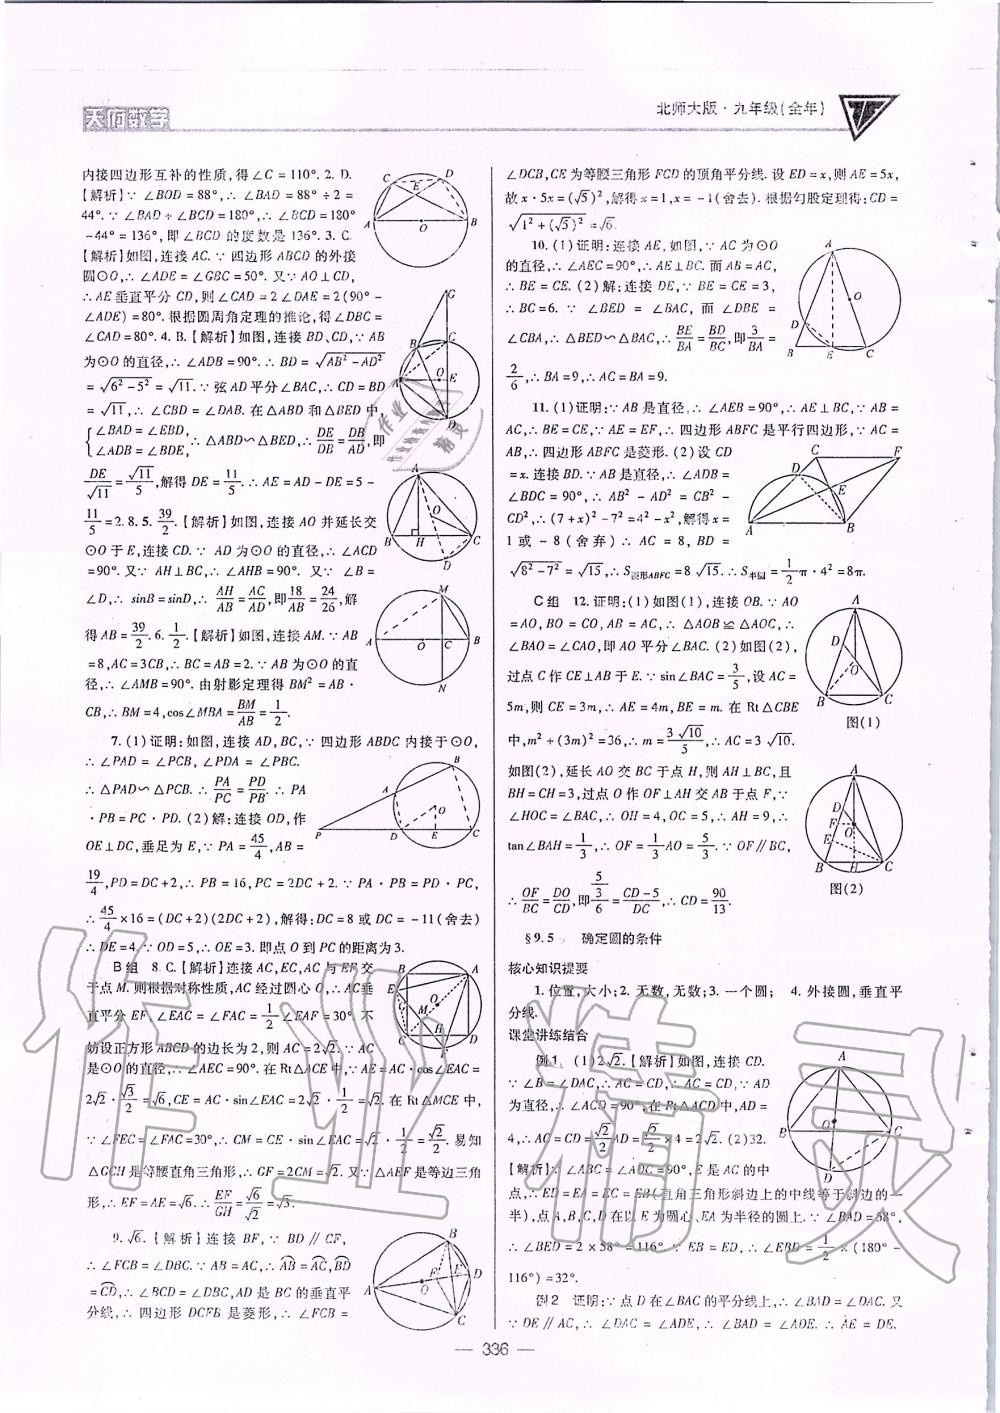 天府数学
北师大版·九年级(全年)
内接四边形互补的性质,得∠C=110°. 2. D.
【解析】∵∠BOD=88°,∴∠BAD=88°÷2=
44°.∵∠BAD+∠BCD=180°,∴∠BCD=180°
-44°=136°,即∠BCD的度数是136°. 3. C.
【解析】如图,连接AC.∵四边形ABCD的外接
圆⊙O,∴∠ADE=∠GBC=50°.又∵AO⊥CD,
∴AE垂直平分CD,则∠CAD=2∠DAE=2(90°-
∠ADE)=80°.根据圆周角定理的推论,得∠DBC=
∠CAD=80°. 4. B.【解析】如图,连接BD、CD,∵AB
为⊙O的直径,∴∠ADB=90°.∴BD=√(AB²-AD²)
=√(6²-5²)=√11.∵弦AD平分∠BAC,∴CD=BD
=√11,∴∠CBD=∠DAB.在△ABD和△BED中,
{∠BAD=∠EBD, ∠ADB=∠BDE, ∴△ABD∽△BED,∴DE/DB=DB/AD,即
DE/√11=√11/5,解得DE=11/5.∴AE=AD-DE=5-
11/5=2.8. 5. 39/2.【解析】如图,连接AO并延长交
⊙O于E,连接CD.∵AD为⊙O的直径,∴∠ACD
=90°.又∵AH⊥BC,∴∠AHB=90°.又∵∠B=
∠D,∴sinB=sinD,∴AH/AB=AC/AD,即18/AB=24/26,解
得AB=39/2. 6. 1/2.【解析】如图,连接AM.∵AB
=8,AC=3CB,∴BC=AB=2.∵AB为⊙O的直
径,∴∠AMB=90°.由射影定理得BM²=AB·
CB,∴BM=4,cos∠MBA=BM/AB=1/2.
7. (1)证明:如图,连接AD,BC,∵四边形ABDC内接于⊙O,
∴∠PAD=∠PCB,∠PDA=∠PBC.
∴△PAD∽△PCB.∴PA/PC=PD/PB.∴PA
·PB=PC·PD. (2)解:连接OD,作
OE⊥DC,垂足为E,∵PA=45/4,AB=
19/4,PD=DC+2,∴PB=16,PC=2DC+2.∵PA·PB=PD·PC,
∴45/4×16=(DC+2)(2DC+2),解得:DC=8或DC=-11(舍去)
∴DE=4.∵OD=5,∴OE=3.即点O到PC的距离为3.
B组 8. C.【解析】连接AC,EC,AC与EF交
于点M.则根据对称性质,AC经过圆心O,∴AC垂
直平分EF,∠EAC=∠FAC=1/2∠EAF=30°.不
妨设正方形ABCD的边长为2,则AC=2√2.∵AC
是⊙O的直径,∴∠AEC=90°.在Rt△ACE中,∵AE=AC·cos∠EAC=
2√2·√3/2=√6,CE=AC·sin∠EAC=2√2·1/2=√2.在Rt△MCE中,
∵∠FEC=∠FAC=30°,∴CM=CE·sin∠EAC=√2·1/2=√2/2.易知
△GCH是等腰直角三角形,∴GF=2CM=√2.又∵△AEF是等边三角
形,∴EF=AE=√6.∴EF/GH=√6/√2=√3.
9. √6.【解析】连接BF,∵BD∥CF,
∴∠FCB=∠DBC.∵AB=AC,∴AB=AC,BD
=CD,∴∠BCD=∠DBC,AD是∠BAC的垂直平
分线,∴四边形DCFB是菱形,∴∠FCB=
∠DCB,CE为等腰三角形FCD的顶角平分线.设ED=x,则AE=5x,
故x·5x=(√5)²,解得x=1,x=-1(舍去).根据勾股定理得:CD=
√(1²+(√5)²)=√6.
10. (1)证明:连接AE,如图,∵AC为⊙O
的直径,∴∠AEC=90°,∴AE⊥BC.而AB=AC,
∴BE=CE. (2)解:连接DE,∵BE=CE=3,
∴BC=6.∵∠BED=∠BAC,而∠DBE=
∠CBA,∴△BED∽△BAC,∴BE/BA=BD/BC,即3/BA=
2/6,∴BA=9,∴AC=BA=9.
11. (1)证明:∵AB是直径,∴∠AEB=90°,∴AE⊥BC,∵AB=
AC,∴BE=CE,∵AE=EF,∴四边形ABFC是平行四边形,∵AC=
AB,∴四边形ABFC是菱形. (2)设CD
=x.连接BD.∵AB是直径,∴∠ADB=
∠BDC=90°,∴AB²-AD²=CB²-
CD²,∴(7+x)²-7²=4²-x²,解得x=
1或-8(舍弃)∴AC=8,BD=
√(8²-7²)=√15,∴S菱形ABFC=8√15.∴S半圆=1/2π·4²=8π.
C组 12. 证明:(1)如图(1),连接OB.∵AO
=AO,BO=CO,AB=AC,∴△AOB≌△AOC,∴
∠BAO=∠CAO,即AO平分∠BAC. (2)如图(2),
过点C作CE⊥AB于E.∵sin∠BAC=3/5,设AC=
5m,则CE=3m,∴AE=4m,BE=m.在Rt△CBE
中,m²+(3m)²=36,∴m=3√10/5,∴AC=3√10.
如图(2),延长AO交BC于点H,则AH⊥BC,且
BH=CH=3,过点O作OF⊥AH交AB于点F,∵
∠HOC=∠BAC,∴OH=4,OC=5,∴AH=9,∴
tan∠BAH=1/3,∴OF=1/3AO=5/3.∵OF∥BC,
∴OF/BC=DO/CD,即(5/3)/6=CD-5/DC,∴CD=90/13.
图(1)
图(2)
§9.5 确定圆的条件
核心知识提要
1. 位置,大小;2. 无数,无数;3. 一个圆; 4. 外接圆,垂直平
分线.
课堂讲练结合
例1 (1)2√2.【解析】如图,连接CD.
∵∠B=∠DAC,∴AC=CD,∵AD
为直径,∴∠ACD=90°,在Rt△ACD中,AD=
4,∴AC=CD=√2/2AD=√2/2×4=2√2. (2)32.
【解析】∵∠ABC=∠ADC=90°,E是AC的中
点,∴ED=EA=EC=EB(直角三角形斜边上的中线等于斜边的一
半),∴点A,B,C,D在以E为圆心,EA为半径的圆上.∵∠BAD=58°,
∴∠BED=2×58°=116°.∵EB=ED,∴∠EBD=1/2×(180°-
116°)=32°.
例2 证明:∵点D在∠BAC的平分线上,∴∠BAD=∠DAC.又
∵DE∥AC,∴∠DAC=∠ADE,∴∠BAD=∠ADE.∴AE=DE.
— 336 —
作业精灵